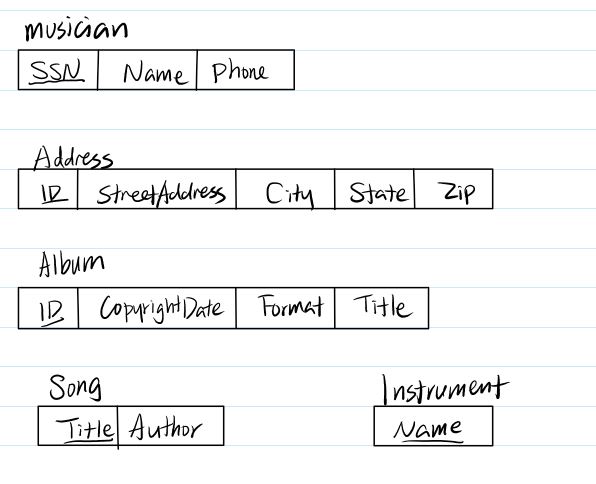 musician
SSN Name Phone
Address
ID StreetAddress City State Zip
Album
ID CopyrightDate Format Title
Song Instrument
Title Author Name